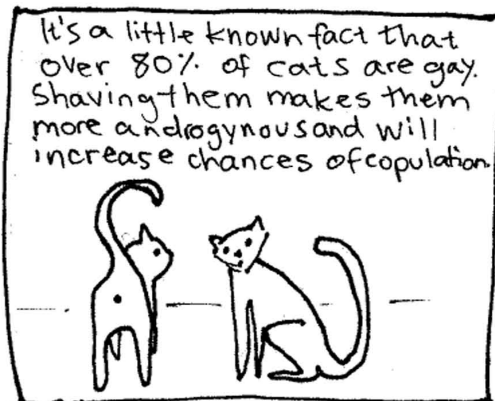 It's a little known fact that
over 80% of cats are gay.
Shaving them makes them
more androgynous and will
increase chances of copulation.